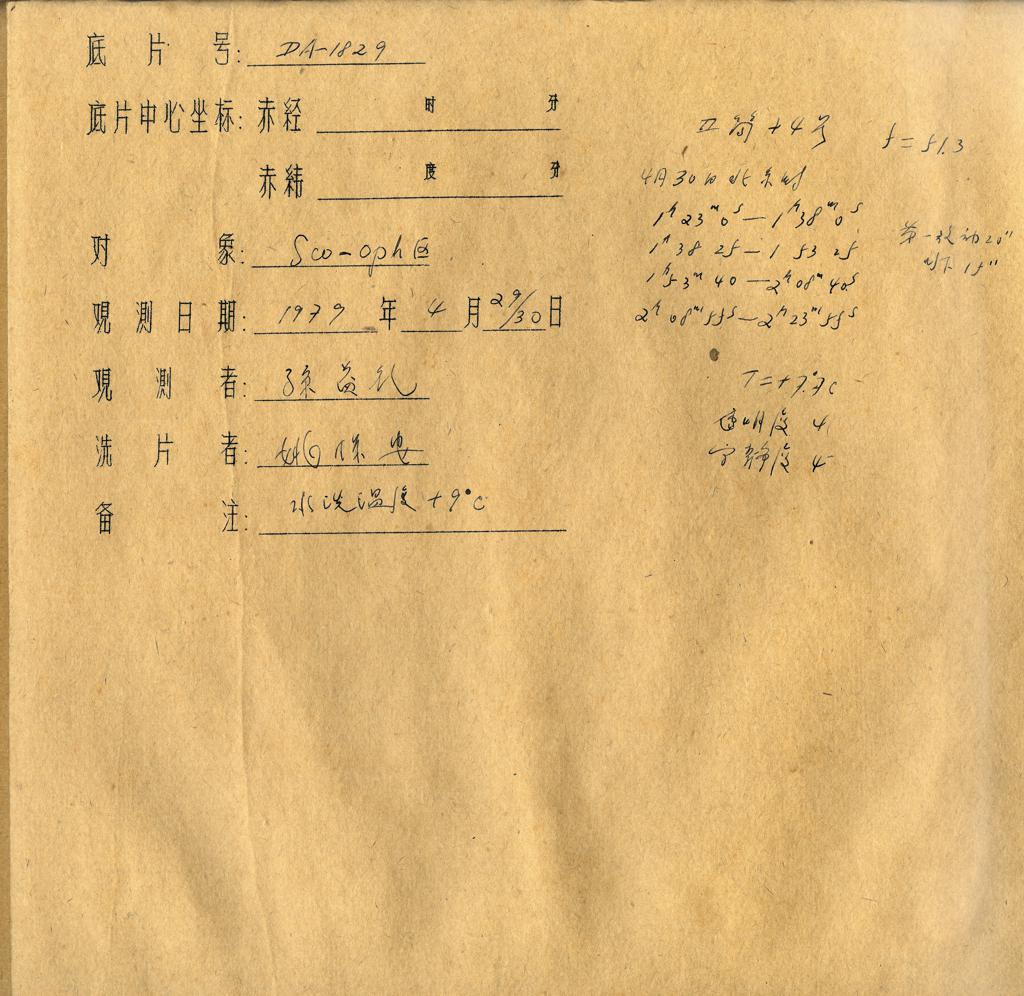 底片号: DA-1829
底片中心坐标: 赤经 时 分
赤纬 度 分
对象: Sco-Oph区
观测日期: 1979 年 4 月 29/30 日
观测者: 孙益礼
洗片者: 姚保安
备注: 水洗温度 +9°C
+4号 f=51.3
4月30日北京时
1h23m0s—1h38m0s
1h38 25—1 53 25
1h53m40—2h08m40s
2h08m55s—2h23m55s
第一次动20"
15"
T=+7.°7C
透明度 4
宁静度 4